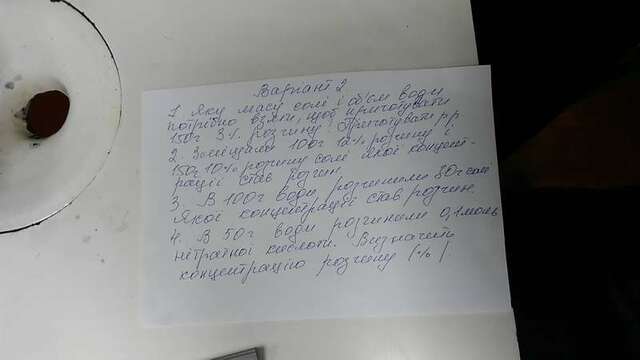 Варіант 2
1. Яку масу солі і об'єм води
потрібно взяти, щоб приготувати
150г 3% розчину. Приготувати р.р
2. Змішали 100г 12% розчину і
150г 10% розчину солі якої концент-
рації став розчин.
3. В 100г води розчинили 80г солі
Якої концентрації став розчин.
4. В 50г води розчинили 0,1моль
нітратної кислоти. Визначити
концентрацію розчину (%).